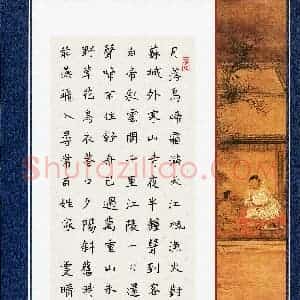 月落烏啼霜滿天江楓漁火對
蘇城外寒山寺夜半鐘聲到客
白帝彩雲間千里江陵一日還
聲啼不住輕舟已過萬重山
野草花烏衣巷口夕陽斜舊
前燕飛入尋常百姓家 雯晴
Shufaziliao.Com